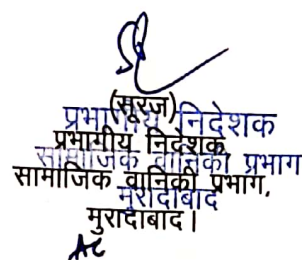 (सूरज)
प्रभागीय निदेशक
प्रभागीय निदेशक
सामाजिक वानिकी प्रभाग
सामाजिक वानिकी प्रभाग,
मुरादाबाद
मुरादाबाद।